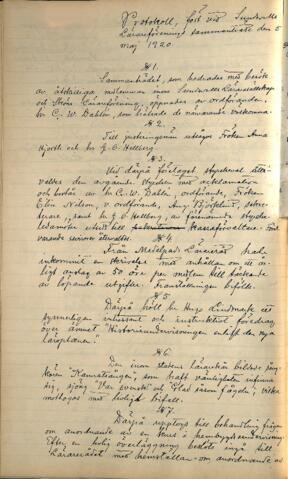 Protokoll, fört vid Sundsvalls
Lärareförenings sammanträde den 5
maj 1920.
§1.
Sammanträdet, som hedrades med besök
av åtskilliga medlemmar inom Sundsvalls Läraresällskap
och Sköns Lärareförening, öppnades av ordföranden,
hr C. W. Dahlin, som hälsade de närvarande välkomna.
§2.
Till justeringsmän utsågos Fröken Anna
Hjorth och hr G. C. Hellberg.
§3.
Vid därpå företaget styrelseval
valdes den avgående styrelsen med acklamation
och bestod av hr C. W. Dahlin, ordförande, Fröken
Elin Nilson, v. ordförande, sekre-
terare, samt hr G. C. Hellberg, av förenämnda styrelse-
ledamöter utsett till kassaförvaltare.
varande revisorer återvaldes.
§4.
Från Medelpads Lärareråd hade
inkommit en skrivelse med anhållan om ett år-
ligt anslag av 50 öre per medlem till täckande
av löpande utgifter. Framställningen bifölls.
§5.
Därpå höll hr Hugo Lindmark ett
synnerligen intressant och instruktivt föredrag
över ämnet "Historieundervisningen enligt den nya
läroplanen."
§6.
Den inom stadens lärarekår bildade sång-
kören "Kamraterna", som haft vänligheten infinna
sig, sjöng "Var svenskt" och "Glad såsom fågeln", vilka
mottogos med livligt bifall.
§7.
Därpå upptogs till behandling frågan
om anordnande av en kurs i hembygdsundervisning.
Efter en livlig överläggning beslöts ingå till
Lärarerådet med hemställan om anordnande av